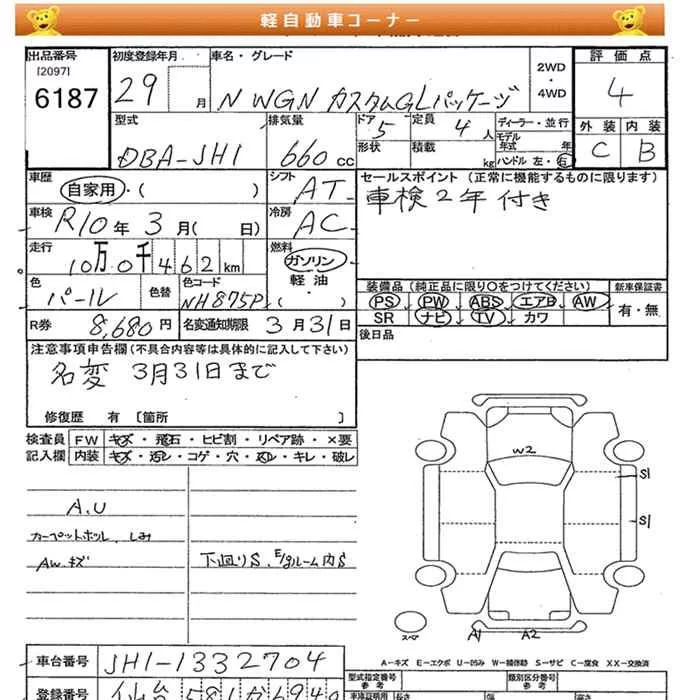 軽自動車コーナー
出品番号 初度登録年月 車名・グレード 2WD・4WD 評価点
[2097]
6187 29 月 N WGN カスタムGLパッケージ 4
型式 排気量 ドア 5 定員 4 人 ディーラー・並行 外装 内装
DBA-JH1 660 cc 形状 積載 kg モデル年式 年式 ハンドル 左・右 C B
車歴 自家用・( ) シフト AT セールスポイント (正常に機能するものに限ります)
車検 R10年 3月( 日) 冷房 AC 車検2年付き
走行 10万0千462km 燃料 ガソリン・軽油・( )
色 パール 色替 色コード NH875P 装備品 (純正品に限り○をつけてください) 新車保証書
PS PW ABS エアB AW 有・無
R券 8,680円 名変通知期限 3月31日 SR ナビ TV カワ
注意事項申告欄 (不具合内容等は具体的に記入して下さい) 後日品
名変 3月31日まで
修復歴 有 [箇所 ]
検査員 FW キズ・飛石・ヒビ割・リペア跡・×要
記入欄 内装 キズ・汚レ・コゲ・穴・スレ・キレ・破レ
W2
S1
A.U
S1
カーペットホール、しみ
AWキズ 下廻りS、E/gルーム内S
スペア A1 A2
A-キズ E-エクボ U-凹み W-補修跡 S-サビ C-腐食 XX-交換済
車台番号 JH1-1332704 型式指定番号 参考 類別区分番号 参考
登録番号 仙台581か6940 車庫証明用 参考 長さ 幅 高さ